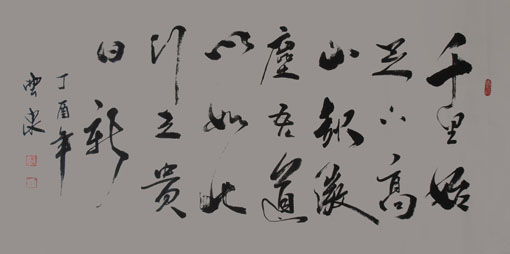 千里始
足下高
山起微
塵吾道
亦如此
行之貴
日新
丁酉年